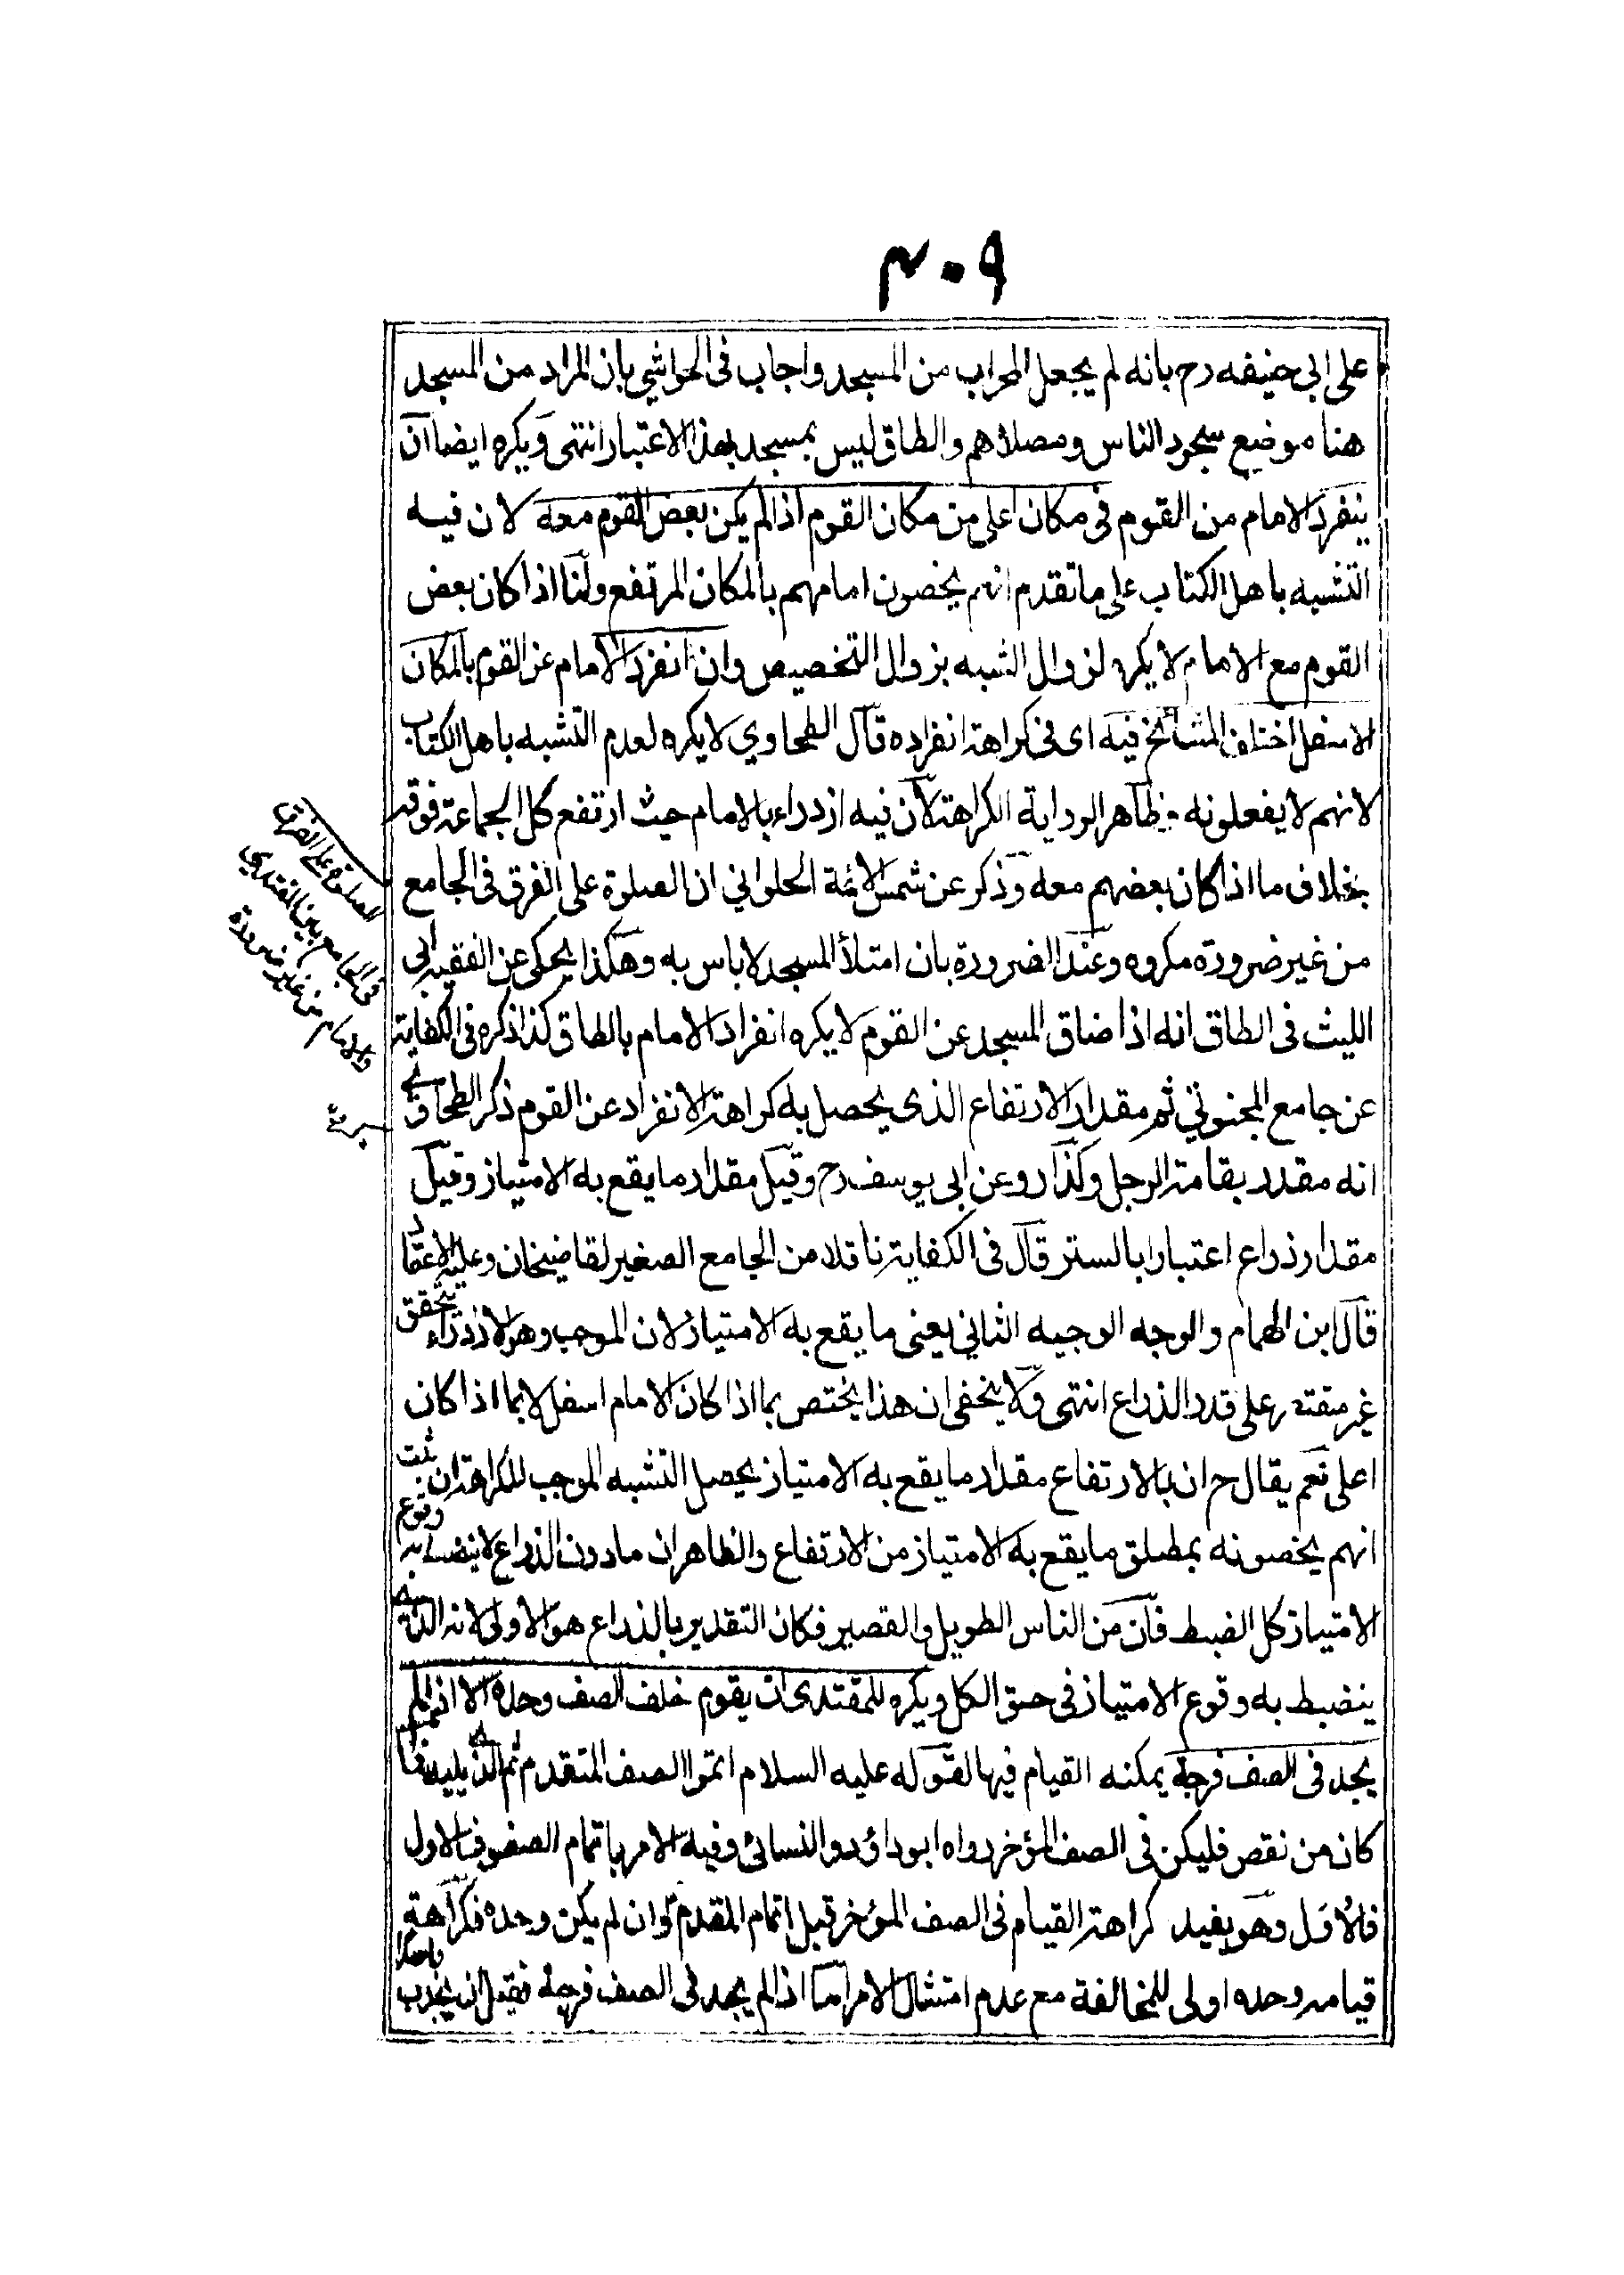 ٣٠٩
على ابى حنيفه رح بانه لم يجعل المحراب من المسجد واجاب فى الحواشي بان المراد من المسجد
هنا موضيع سجود الناس ومصلاهم والطاق ليس بمسجد بهذا الاعتبار انتهى ويكره ايضا ان
ينفرد الامام من القوم فى مكان اعلى من مكان القوم اذا لم يكن بعض القوم معه لان فيه
التشبه باهل الكتاب على ما تقدم انهم يخصون امامهم بالمكان المرتفع ولنا اذا كان بعض
القوم مع الامام لا يكره لزوال الشبه بزوال التخصيص وان انفرد الامام عن القوم بالمكان
الاسفل اختلف المشائخ فيه اى فى كراهة انفراده قال الطحاوي لا يكره لعدم التشبه باهل الكتاب
لانهم لا يفعلونه وظاهر الرواية الكراهة لان فيه ازدراء بالامام حيث ارتفع كل الجماعة فوقه
بخلاف ما اذا كان بعضهم معه وذكر عن شمس الائمة الحلواني ان الصلوة على الفرق فى الجامع
من غير ضرورة مكروه وعند الضرورة بان امتلأ المسجد لا باس به وهكذا يحكى عن الفقيه ابى
الليث فى الطاق انه اذا ضاق المسجد عن القوم لا يكره انفراد الامام بالطاق كذا ذكره فى الكفاية
عن جامع المحبوبي ثم مقدار الارتفاع الذى يحصل به كراهة الانفراد عن القوم ذكر الطحاوي
انه مقدر بقامة الرجل وكذا رو عن ابى يوسف رح وقيل مقدار ما يقع به الامتياز وقيل
مقدار ذراع اعتبارا بالستر قال فى الكفاية ناقلا من الجامع الصغير لقاضيخان وعليه الاعتماد
قال ابن الهمام والوجه الوجيه الثاني يعنى ما يقع به الامتياز لان الموجب وهو الازدراء يتحقق
غير مقتصر على قدر الذراع انتهى ولا يخفى ان هذا يختص بما اذا كان الامام اسفل لا بما اذا كان
اعلى نعم يقال ح ان بالارتفاع مقدار ما يقع به الامتياز يحصل التشبه الموجب للكراهة ان ثبت
انهم يخصونه بمطلق ما يقع به الامتياز من الارتفاع والظاهر ان ما دون الذراع لا ينضبط به وقوع
الامتياز كل الضبط فان من الناس الطويل والقصير فكان التقدير بالذراع هو الاولى لانه الذى
ينضبط به وقوع الامتياز فى حق الكل ويكره للمقتدى ان يقوم خلف الصف وحده الا اذا لم
يجد فى الصف فرجة يمكنه القيام فيها لقوله عليه السلام اتموا الصف المتقدم ثم الذي يليه فما
كان من نقص فليكن فى الصف المؤخر رواه ابو داؤد والنسائى وفيه الامر باتمام الصفوف الاول
فالاول وهو يفيد كراهة القيام فى الصف المؤخر قبل اتمام المقدم ولو ان لم يكن وحده فكراهة
قيامه وحده اولى للمخالفة مع عدم امتثال الامر اما اذا لم يجد فى الصف فرجة فقيل ان يجذب
الصلوة على الفرق
فى الجامع بين المقتدي
والامام من غير ضرورة